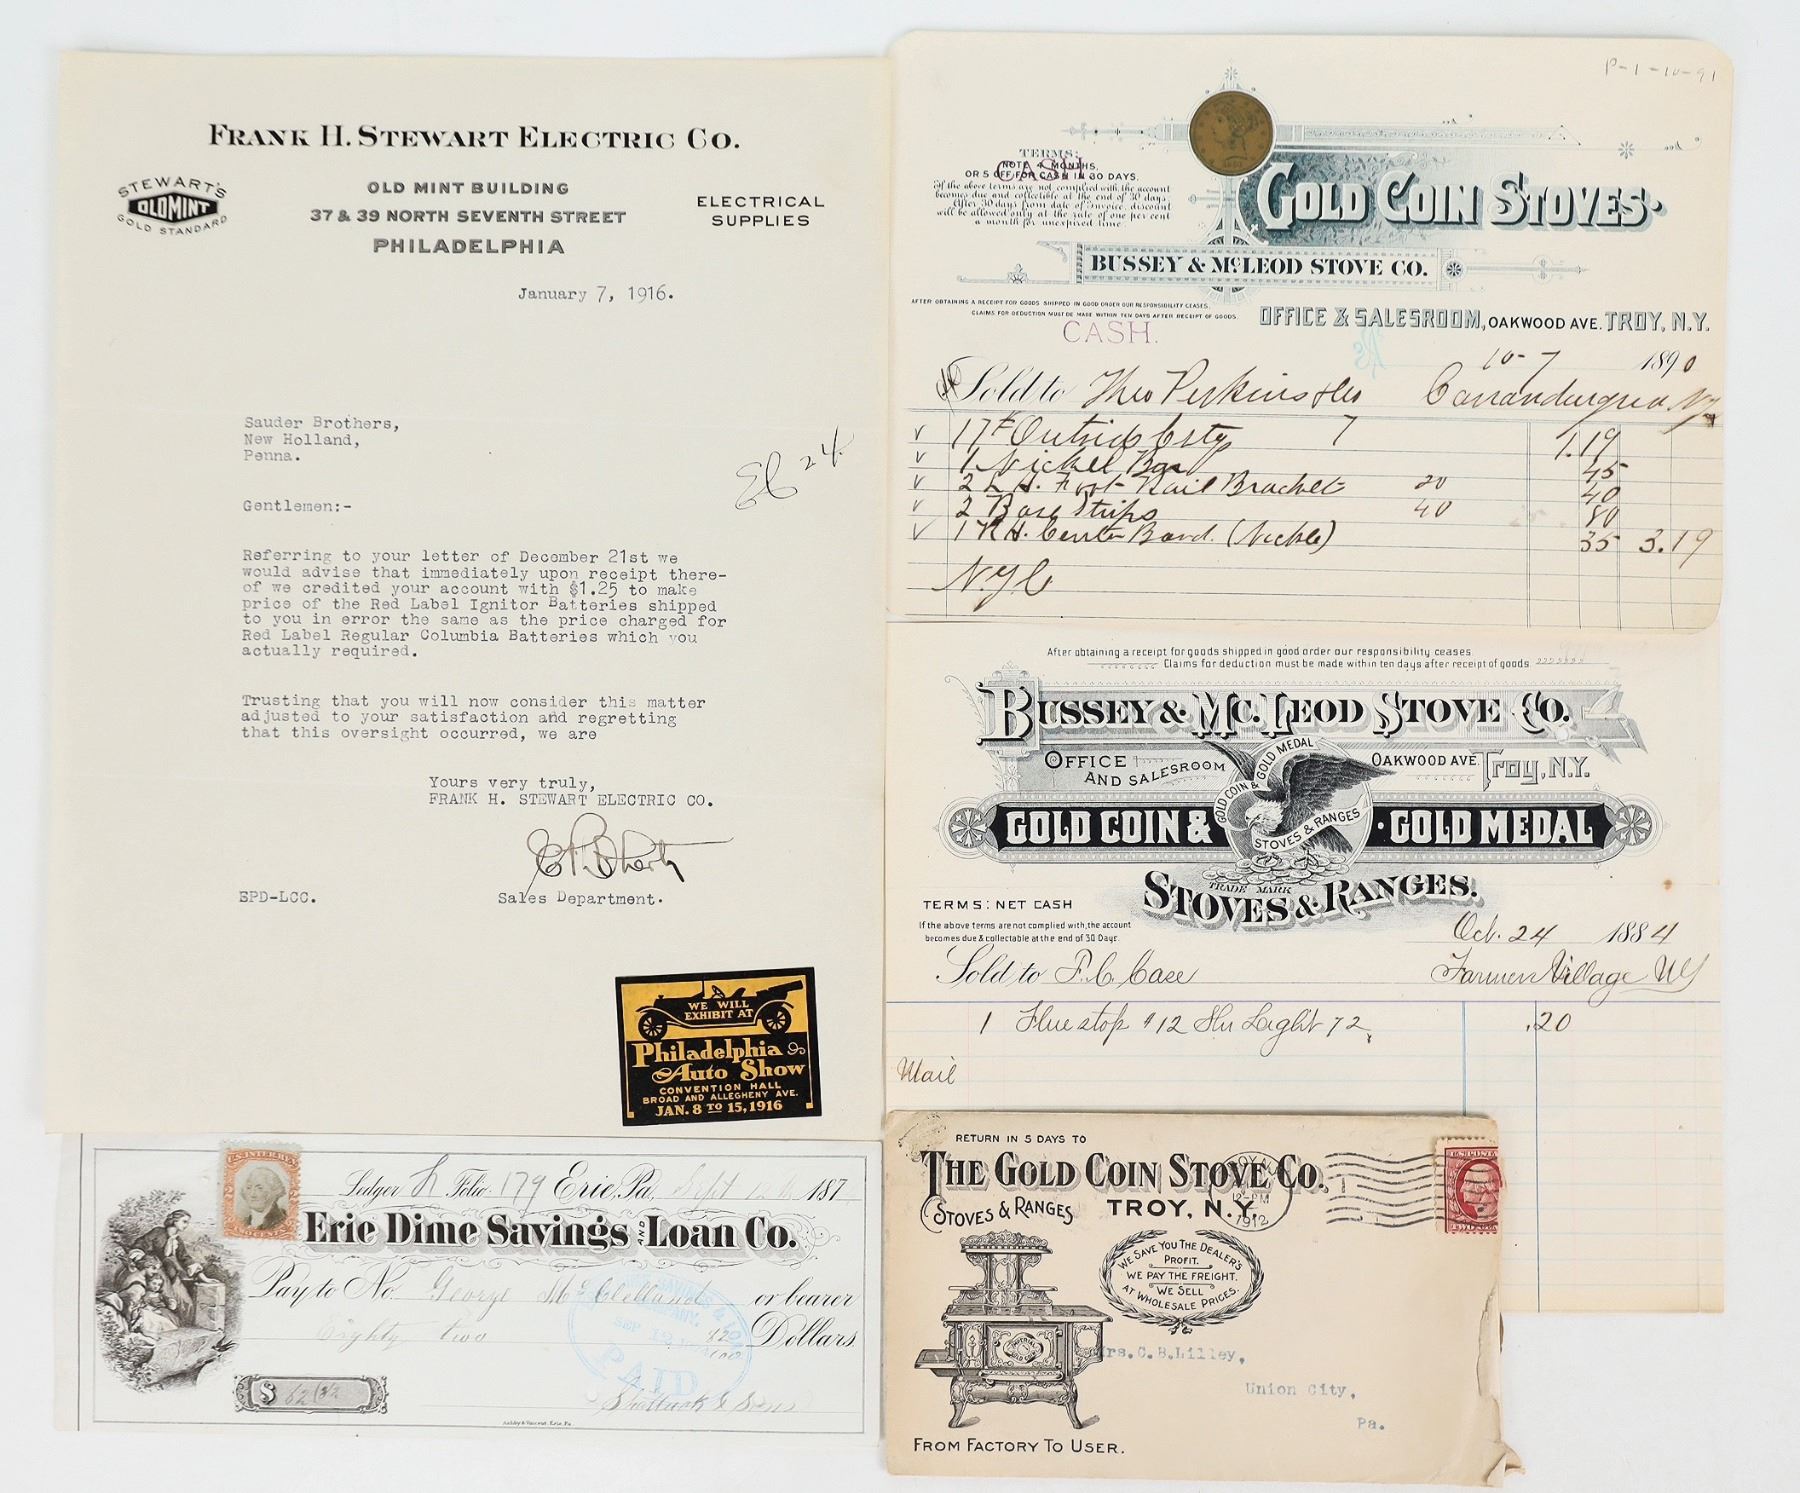 FRANK H. STEWART ELECTRIC CO.
STEWART'S
OLDMINT
GOLD STANDARD
OLD MINT BUILDING
37 & 39 NORTH SEVENTH STREET
PHILADELPHIA
ELECTRICAL
SUPPLIES
January 7, 1916.
Sauder Brothers,
New Holland,
Penna.
24
Gentlemen:-
Referring to your letter of December 21st we
would advise that immediately upon receipt there-
of we credited your account with $1.25 to make
price of the Red Label Ignitor Batteries shipped
to you in error the same as the price charged for
Red Label Regular Columbia Batteries which you
actually required.
Trusting that you will now consider this matter
adjusted to your satisfaction and regretting
that this oversight occurred, we are
Yours very truly,
FRANK H. STEWART ELECTRIC CO.
EPD-LCC.
Sales Department.
WE WILL
EXHIBIT AT
Philadelphia
Auto Show
CONVENTION HALL
BROAD AND ALLEGHENY AVE.
JAN. 8 TO 15, 1916
P-1-10-91
TERMS:
NOTE 4 MONTHS,
CASH
OR 5 OFF FOR CASH IN 30 DAYS.
If the above terms are not complied with, the account
becomes due and collectible at the end of 30 days
After 30 days from date of Invoice discount
will be allowed only at the rate of one per cent
a month for unexpired time.
GOLD COIN STOVES
BUSSEY & McLEOD STOVE CO.
AFTER OBTAINING A RECEIPT FOR GOODS SHIPPED IN GOOD ORDER OUR RESPONSIBILITY CEASES.
CLAIMS FOR DEDUCTION MUST BE MADE WITHIN TEN DAYS AFTER RECEIPT OF GOODS.
OFFICE & SALESROOM, OAKWOOD AVE. TROY, N.Y.
CASH.
10-7 1890
Sold to Theo Perkins & Co
17# Outside 7 1.19
1 Nickel Bar 45
2 L.H. Foot Rail Bracket 20 40
2 Base Strips 40 80
1 R.H. Center Band. (Nickle) 35 3.19
N.Y.C
After obtaining a receipt for goods shipped in good order our responsibility ceases.
Claims for deduction must be made within ten days after receipt of goods.
BUSSEY & MC.LEOD STOVE CO.
OFFICE
AND SALESROOM
OAKWOOD AVE. TROY, N.Y.
GOLD COIN & GOLD MEDAL
STOVES & RANGES
GOLD COIN & · GOLD MEDAL
TRADE MARK
STOVES & RANGES.
TERMS: NET CASH
If the above terms are not complied with, the account
becomes due & collectible at the end of 30 Days.
Oct. 24 1884
Sold to F. C. Case Village NY
1 Flue stop #12 Light 72 .20
Mail
U.S. INTER. REV.
Ledger Folio 179 Erie, Pa. Sept 187
Erie Dime Savings AND Loan Co.
Pay to No. George McClelland or bearer
Eighty two 32/100 Dollars.
SEP 12
PAID
$ 82 32
Shattuck & Sons
Ashby & Vincent. Erie, Pa.
RETURN IN 5 DAYS TO
THE GOLD COIN STOVE CO.,
STOVES & RANGES TROY, N.Y.
12-PM
1912
WE SAVE YOU THE DEALER'S
PROFIT.
WE PAY THE FREIGHT.
WE SELL
AT WHOLESALE PRICES.
IMPERIAL
GOLD COIN
Mrs. C. B. Lilley,
Union City,
Pa.
FROM FACTORY TO USER.